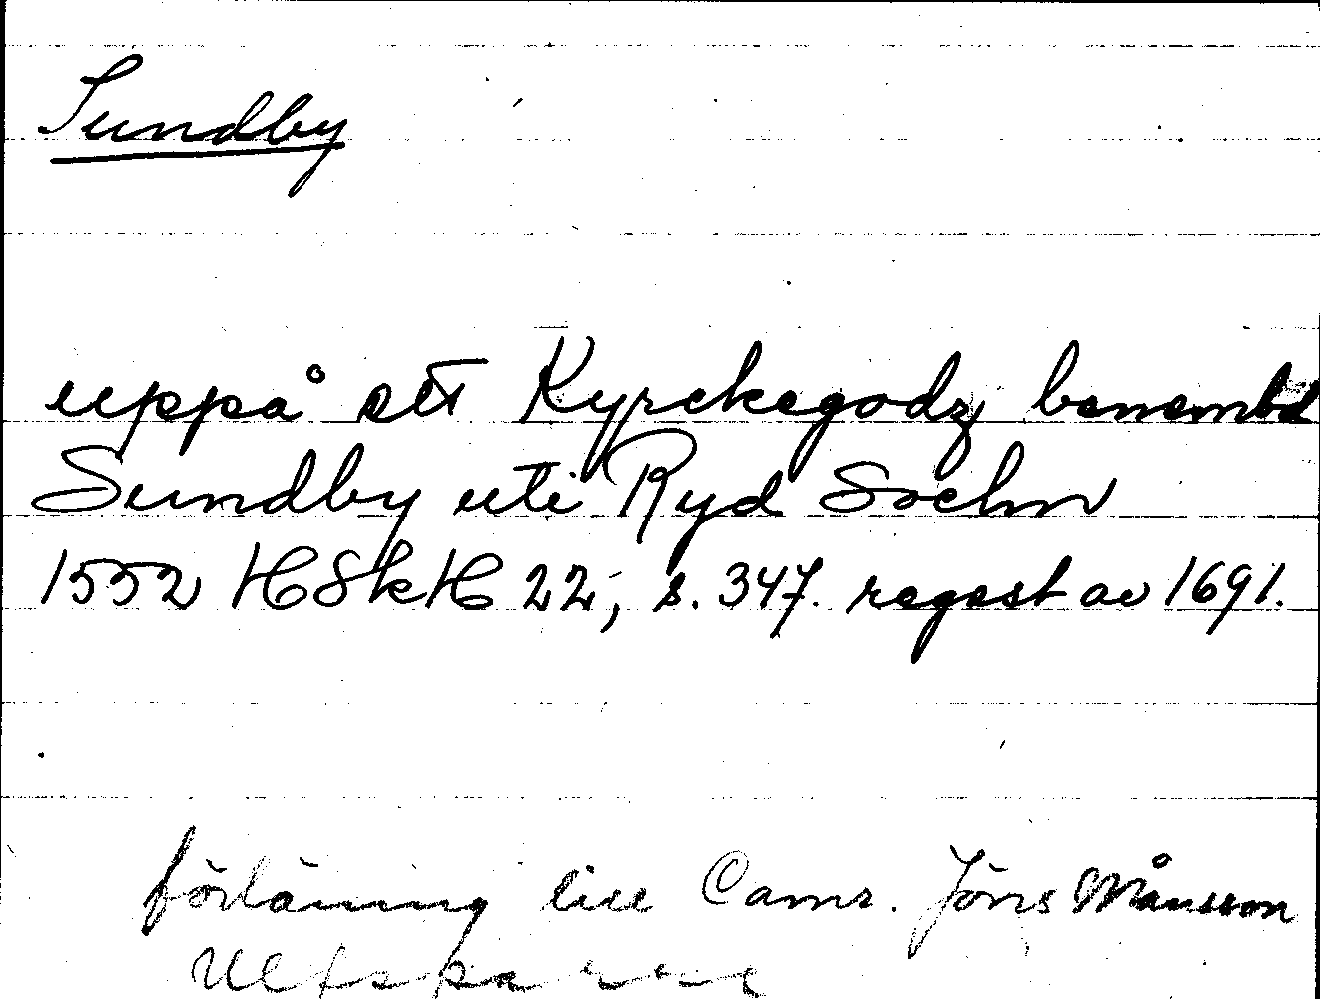 Sundby
uppå ett Kyrckegodz benembd
Sundby uti Ryd Sochn
1552 HSkH 22, s. 347. regest av 1691.
förläning till Cams. Jöns Månsson
Ulfsparre